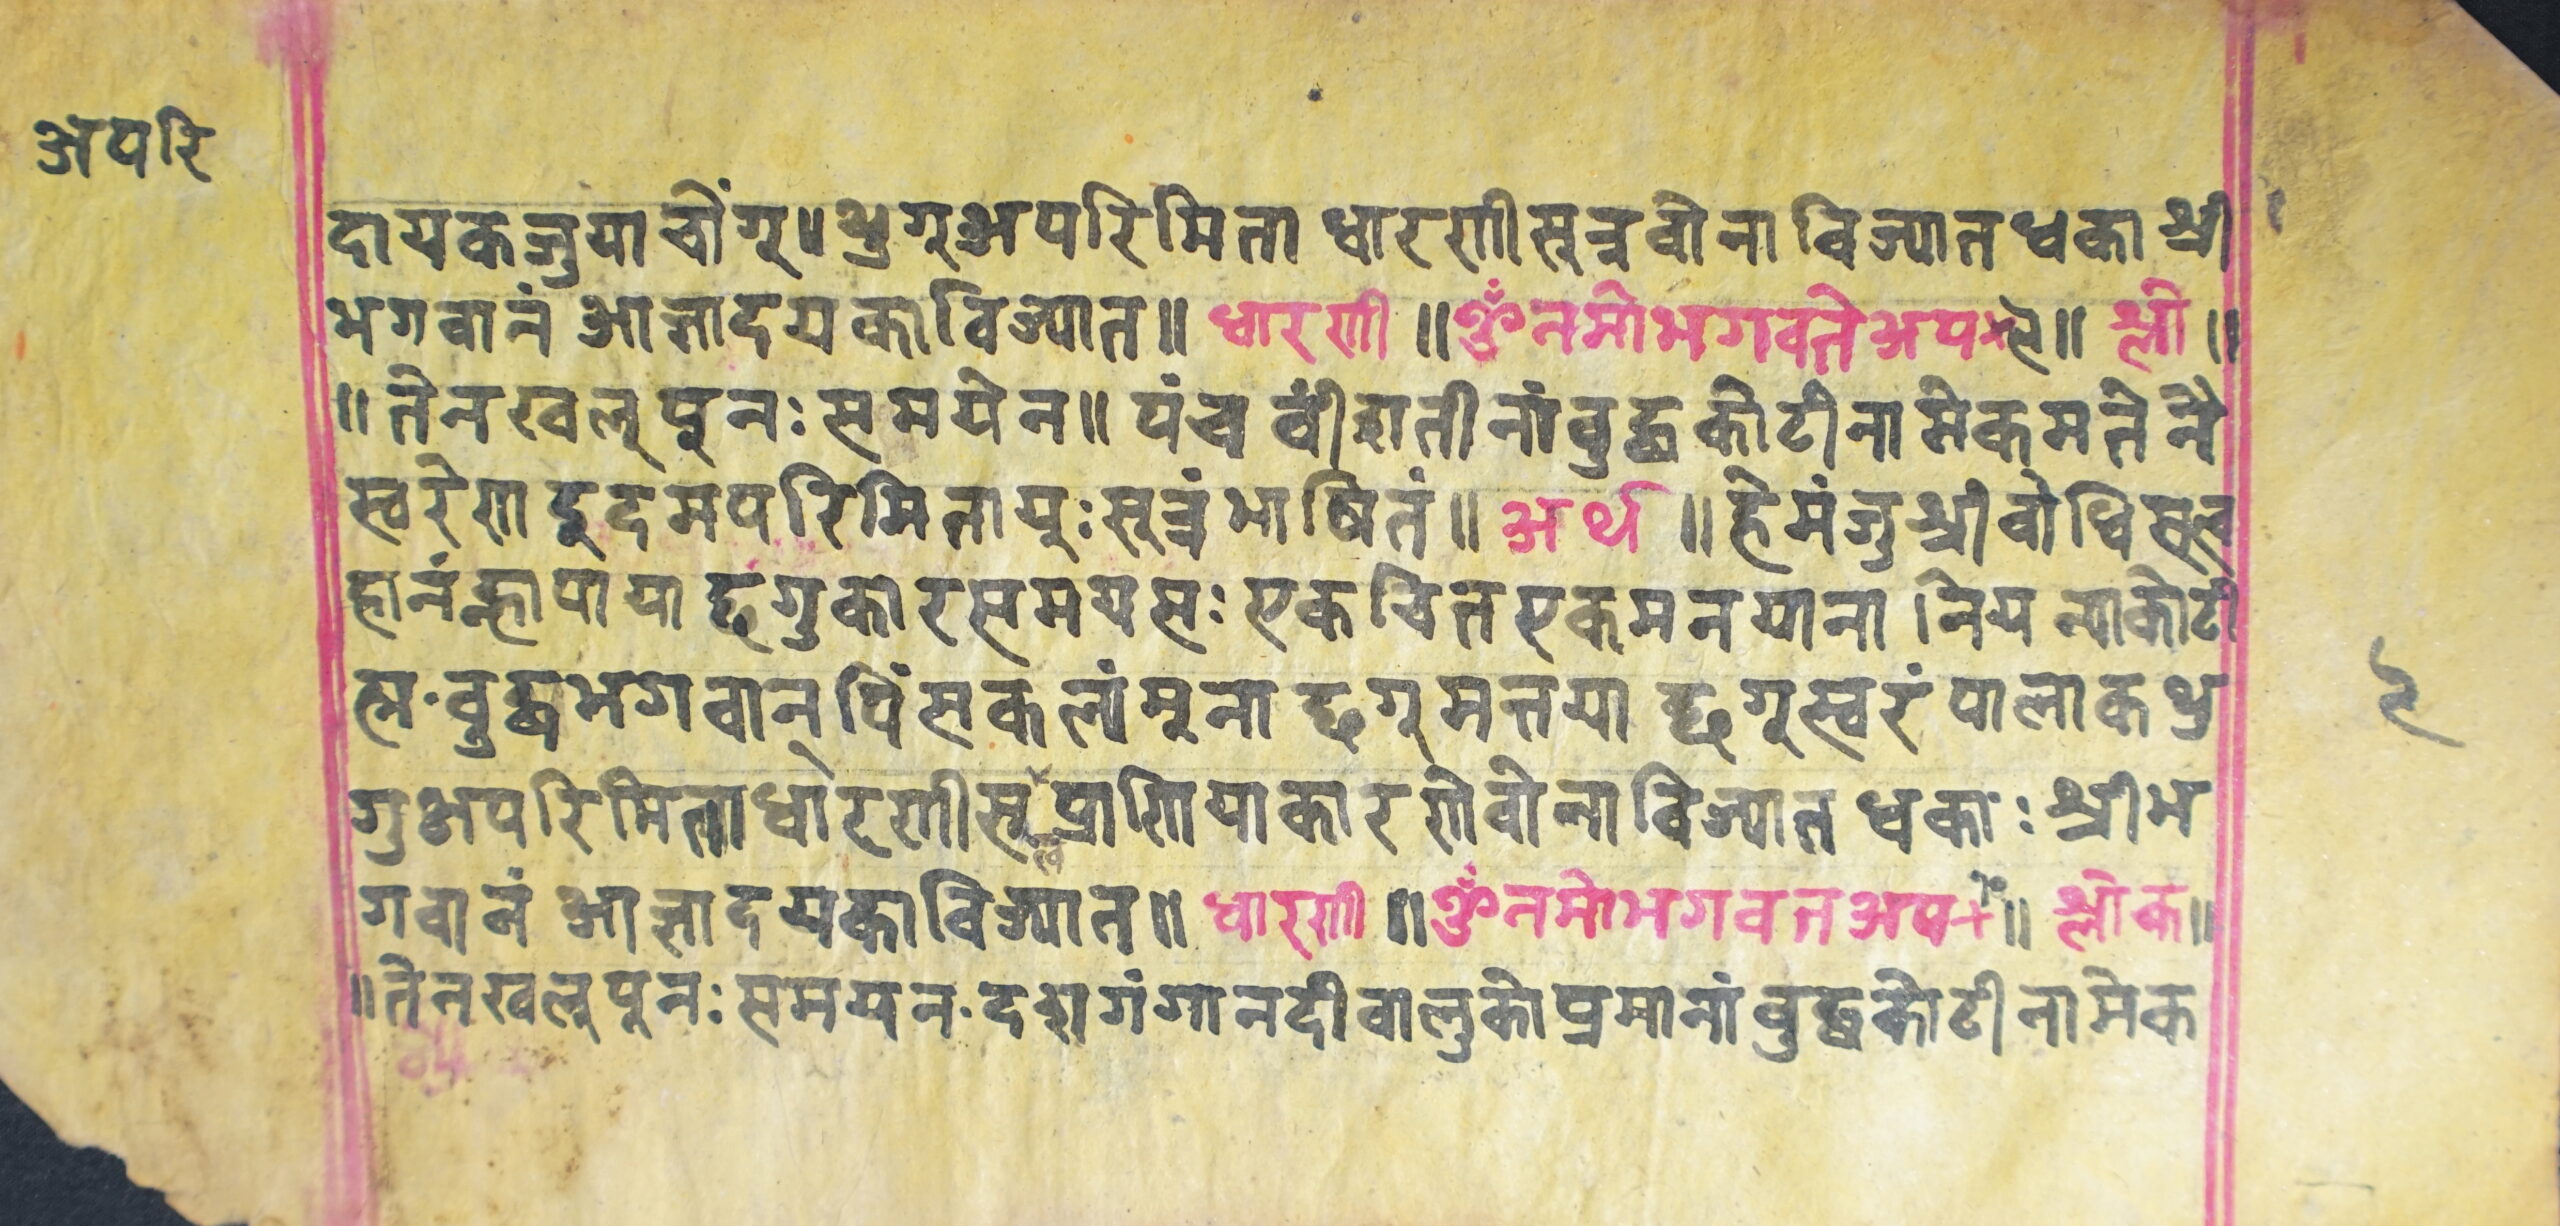 अपरि
दायकजुयाचोंगू॥ थुगूअपरिमिता धारणीसूत्रवोनाविज्यातधका श्री
भगवानं आज्ञादयकाविज्यात॥ धारणी ॥ ॐनमोभगवतेअप×ले॥ श्लो॥
॥ तेनखलूपूनः समयेन॥ पंचवींशतीनांबुद्धकोटीनामेकमतेनै
स्वरेणइदमपरिमितायूःसूत्रंभाषितं॥ अर्थ ॥ हेमंजुश्रीबोधिसत्व
हानंह्नापायाछगुकारसमयसः एकचितएकमनयाना नियन्याकोटी
ह्म·बुद्धभगवान्पिंसकलांमूना छगूमतया छगूस्वरं पालाकथु
गुअपरिमिताधारणीसूत्र प्राणियाकारणेवोनाविज्यातधकाः श्रीभ
गवानं आज्ञादयकाविज्यात॥ धारणी ॥ ॐनमोभगवतअप+॥ श्लोक॥
॥ तेनखलूपूनः समयन·दशगंगानदीवालुकोप्रमानांबुद्धकोटीनामेक
९